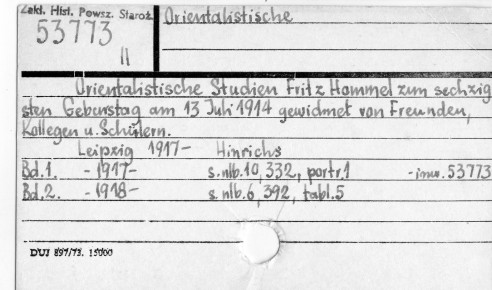 Zakł. Hist. Powsz. Staroż.
53773
II
Orientalistische
Orientalistische Studien Fritz Hommel zum sechzig
sten Geburstag am 13 Juli 1914 gewidmet von Freunden,
Kollegen u. Schülern.
Leipzig 1917- Hinrichs
Bd.1. -1917- s. nlb. 10, 332, portr. 1 -inw. 53773
Bd.2. -1918- s. nlb. 6, 392, tabl. 5
DUJ 897/73. 15000